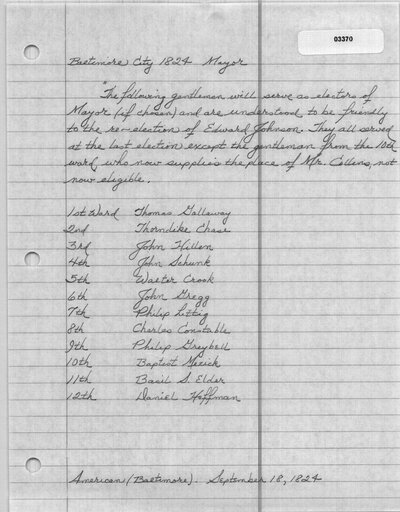 03370
Baltimore City 1824 Mayor
"The following gentlemen will serve as electors of
Mayor (if chosen) and are understood to be friendly
to the re-election of Edward Johnson. They all served
at the last election except the gentleman from the 10th
ward, who now supplies the place of Mr. Collins, not
now eligible.
1st Ward Thomas Gallaway
2nd Thorndike Chase
3rd John Hillen
4th John Schunk
5th Walter Crook
6th John Gregg
7th Philip Littig
8th Charles Constable
9th Philip Greybell
10th Baptist Mezick
11th Basil S. Elder
12th Daniel Hoffman
American (Baltimore). September 18, 1824